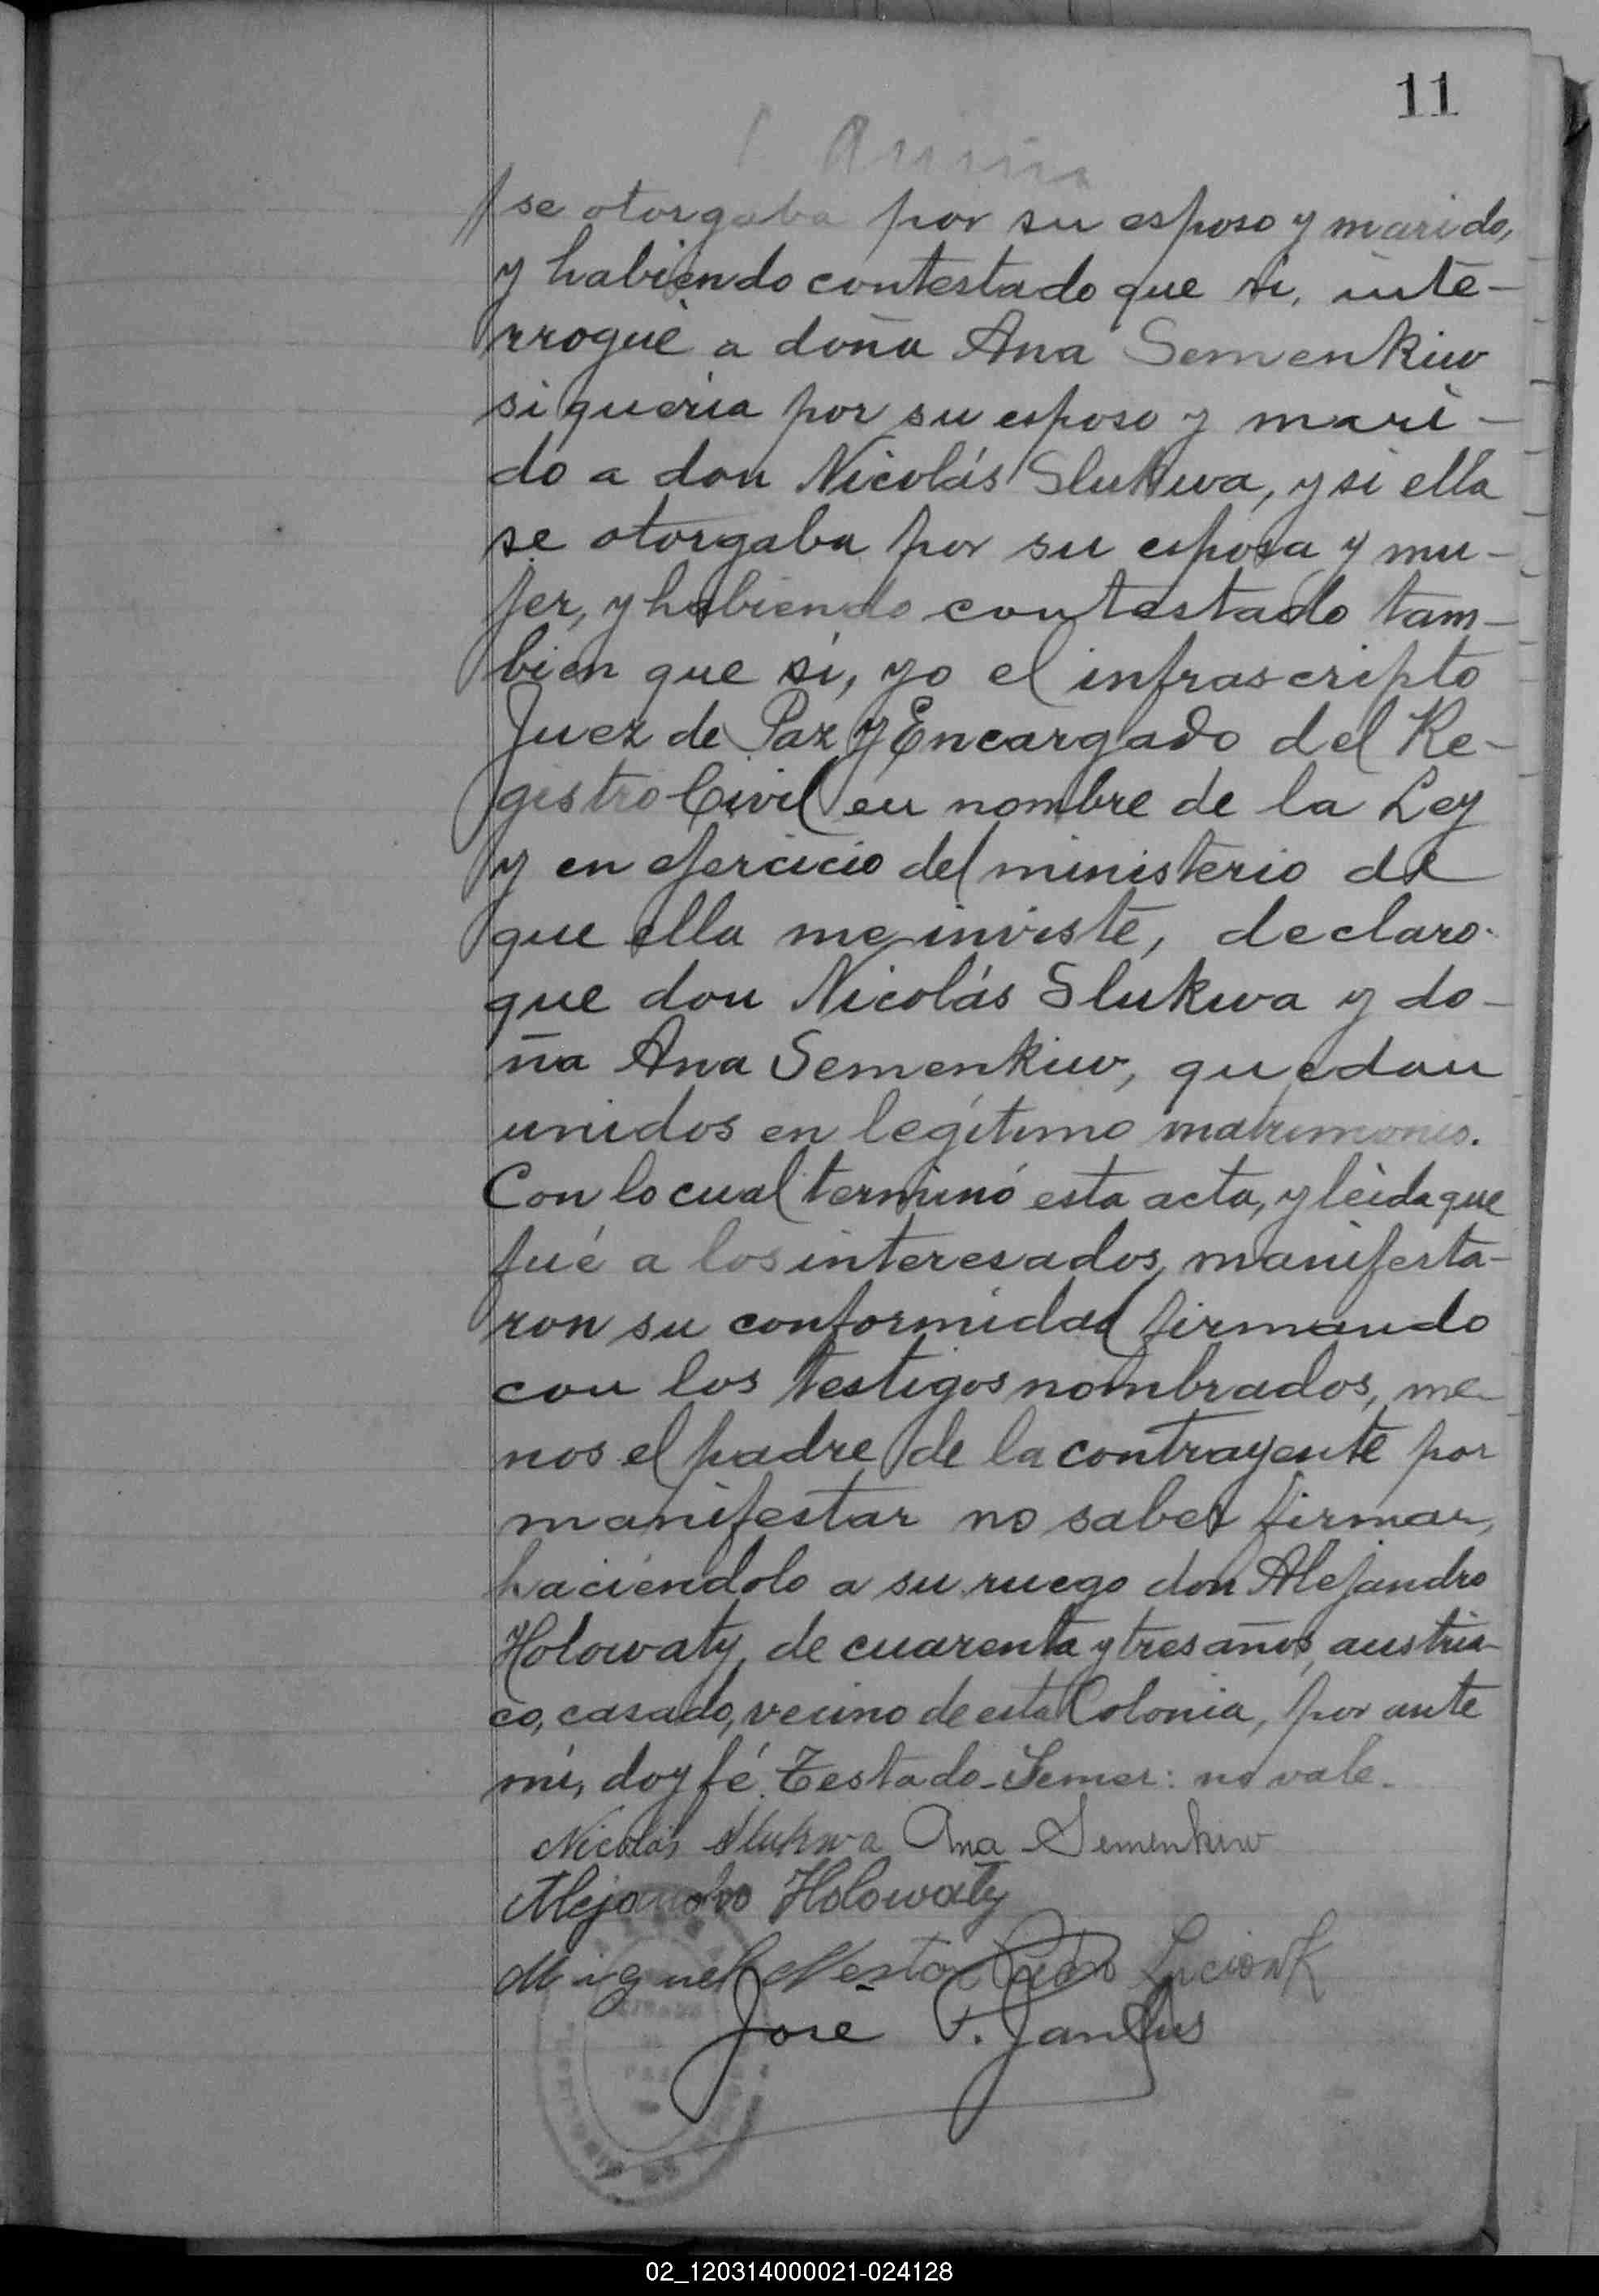 11
se otorgaba por su esposo y marido,
y habiendo contestado que si, inte-
rrogué a doña Ana Semenkiw
si queria por su esposo y mari-
do a don Nicolás Slukwa, y si ella
se otorgaba por su esposa y mu-
jer, y habiendo contestado tam-
bien que si, yo el infrascripto
Juez de Paz y Encargado del Re-
gistro Civil en nombre de la Ley
y en ejercicio del ministerio de
que ella me inviste, declaro
que don Nicolás Slukwa y do-
ña Ana Semenkiw, quedan
unidos en legítimo matrimonio.
Con lo cual terminó esta acta, y leida que
fué a los interesados, manifesta-
ron su conformidad firmando
con los testigos nombrados, me-
nos el padre de la contrayente por
manifestar no saber firmar,
haciéndolo a su ruego don Alejandro
Holowaty, de cuarenta y tres años, austria-
co, casado, vecino de esta Colonia, por ante
mi, doy fé. Testado-Semer: no vale.
Nicolás Slukwa Ana Semenkiw
Alejandro Holowaty
Miguel Nestor
José
02_120314000021-024128